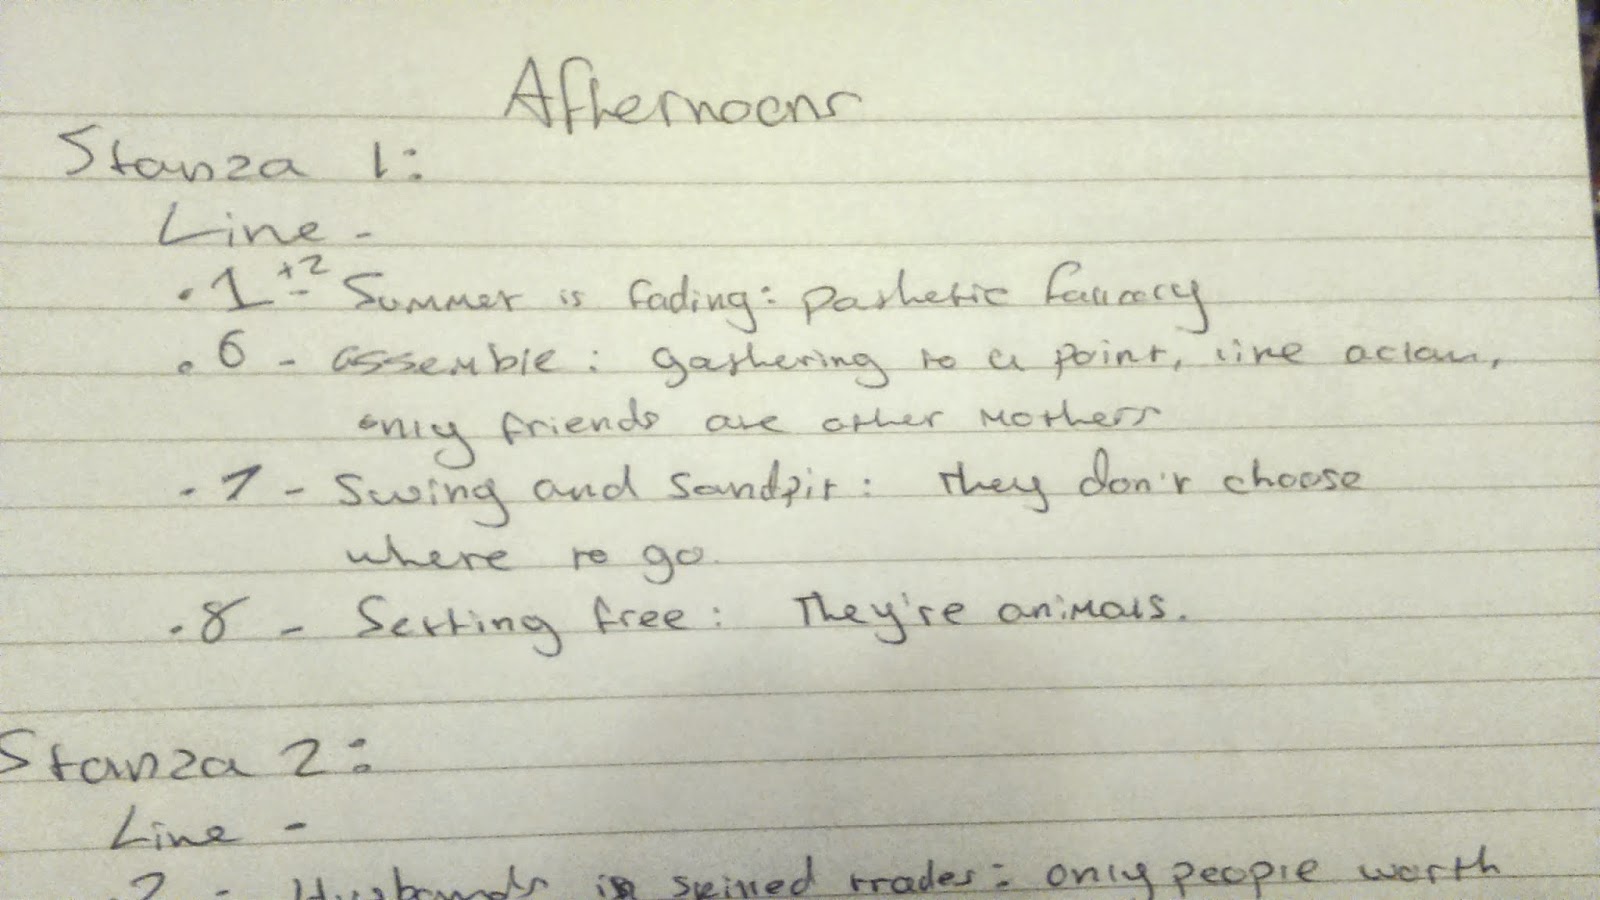 Afternoons
Stanza 1:
Line -
. 1 +2 - Summer is fading: pathetic fallacy
. 6 - assemble: gathering to a point, like a clan,
only friends are other mothers
. 7 - Swing and sandpit: They don't choose
where to go.
. 8 - Setting free: They're animals.
Stanza 2:
Line -
2 - Husbands in skilled trades: only people worth